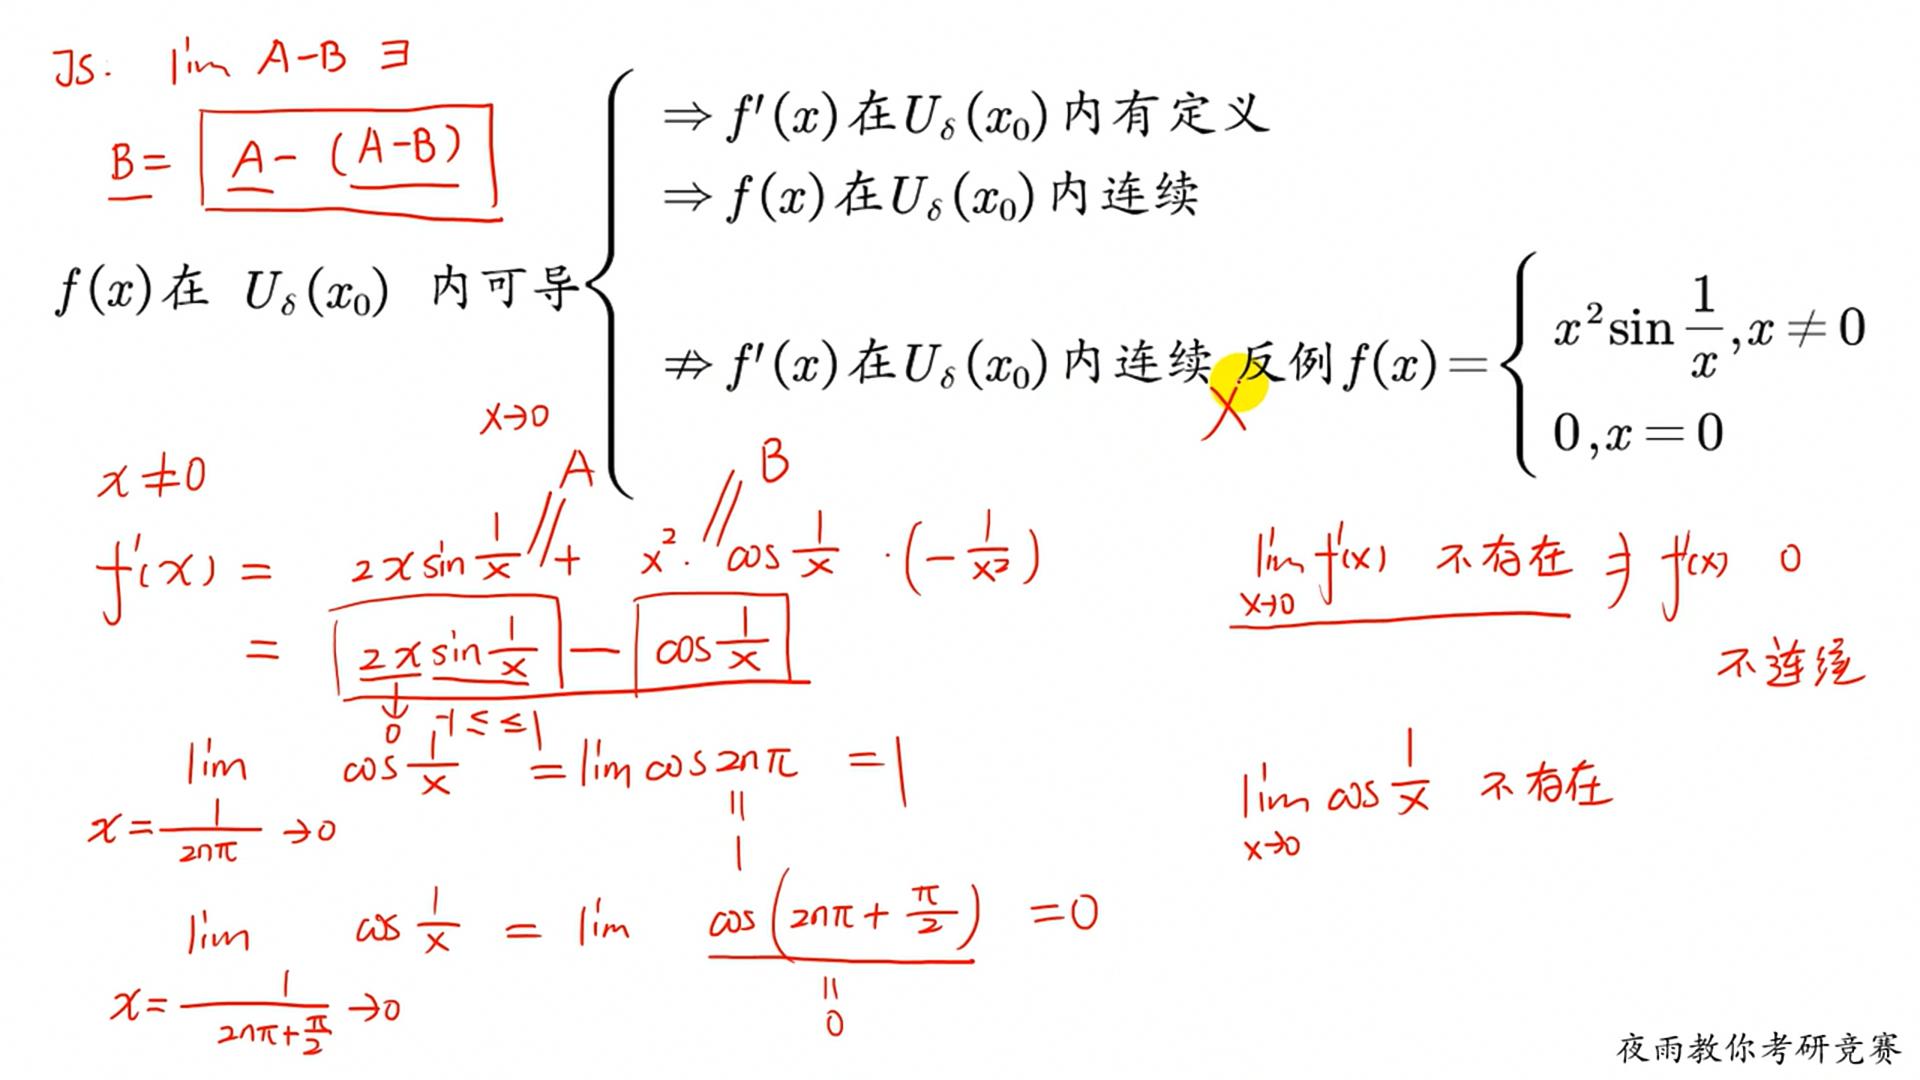 JS: lim A-B ∃
B= A-(A-B)
f(x)在 U_δ(x_0) 内可导
⇒ f'(x)在U_δ(x_0)内有定义
⇒ f(x)在U_δ(x_0)内连续
⇏ f'(x)在U_δ(x_0)内连续 反例f(x)= { x²sin 1/x, x≠0
0, x=0
x→0
x≠0
A
B
f'(x) = 2x sin 1/x + x²·cos 1/x ·(-1/x²)
= 2x sin 1/x - cos 1/x
0 -1≤ ≤1
lim x=1/2nπ →0 cos 1/x = lim cos2nπ =1
1
lim x=1/(2nπ+π/2) →0 cos 1/x = lim cos(2nπ+π/2) =0
0
lim x→0 f'(x) 不存在 ⇒ f'(x) 0
不连续
lim x→0 cos 1/x 不存在
夜雨教你考研竞赛